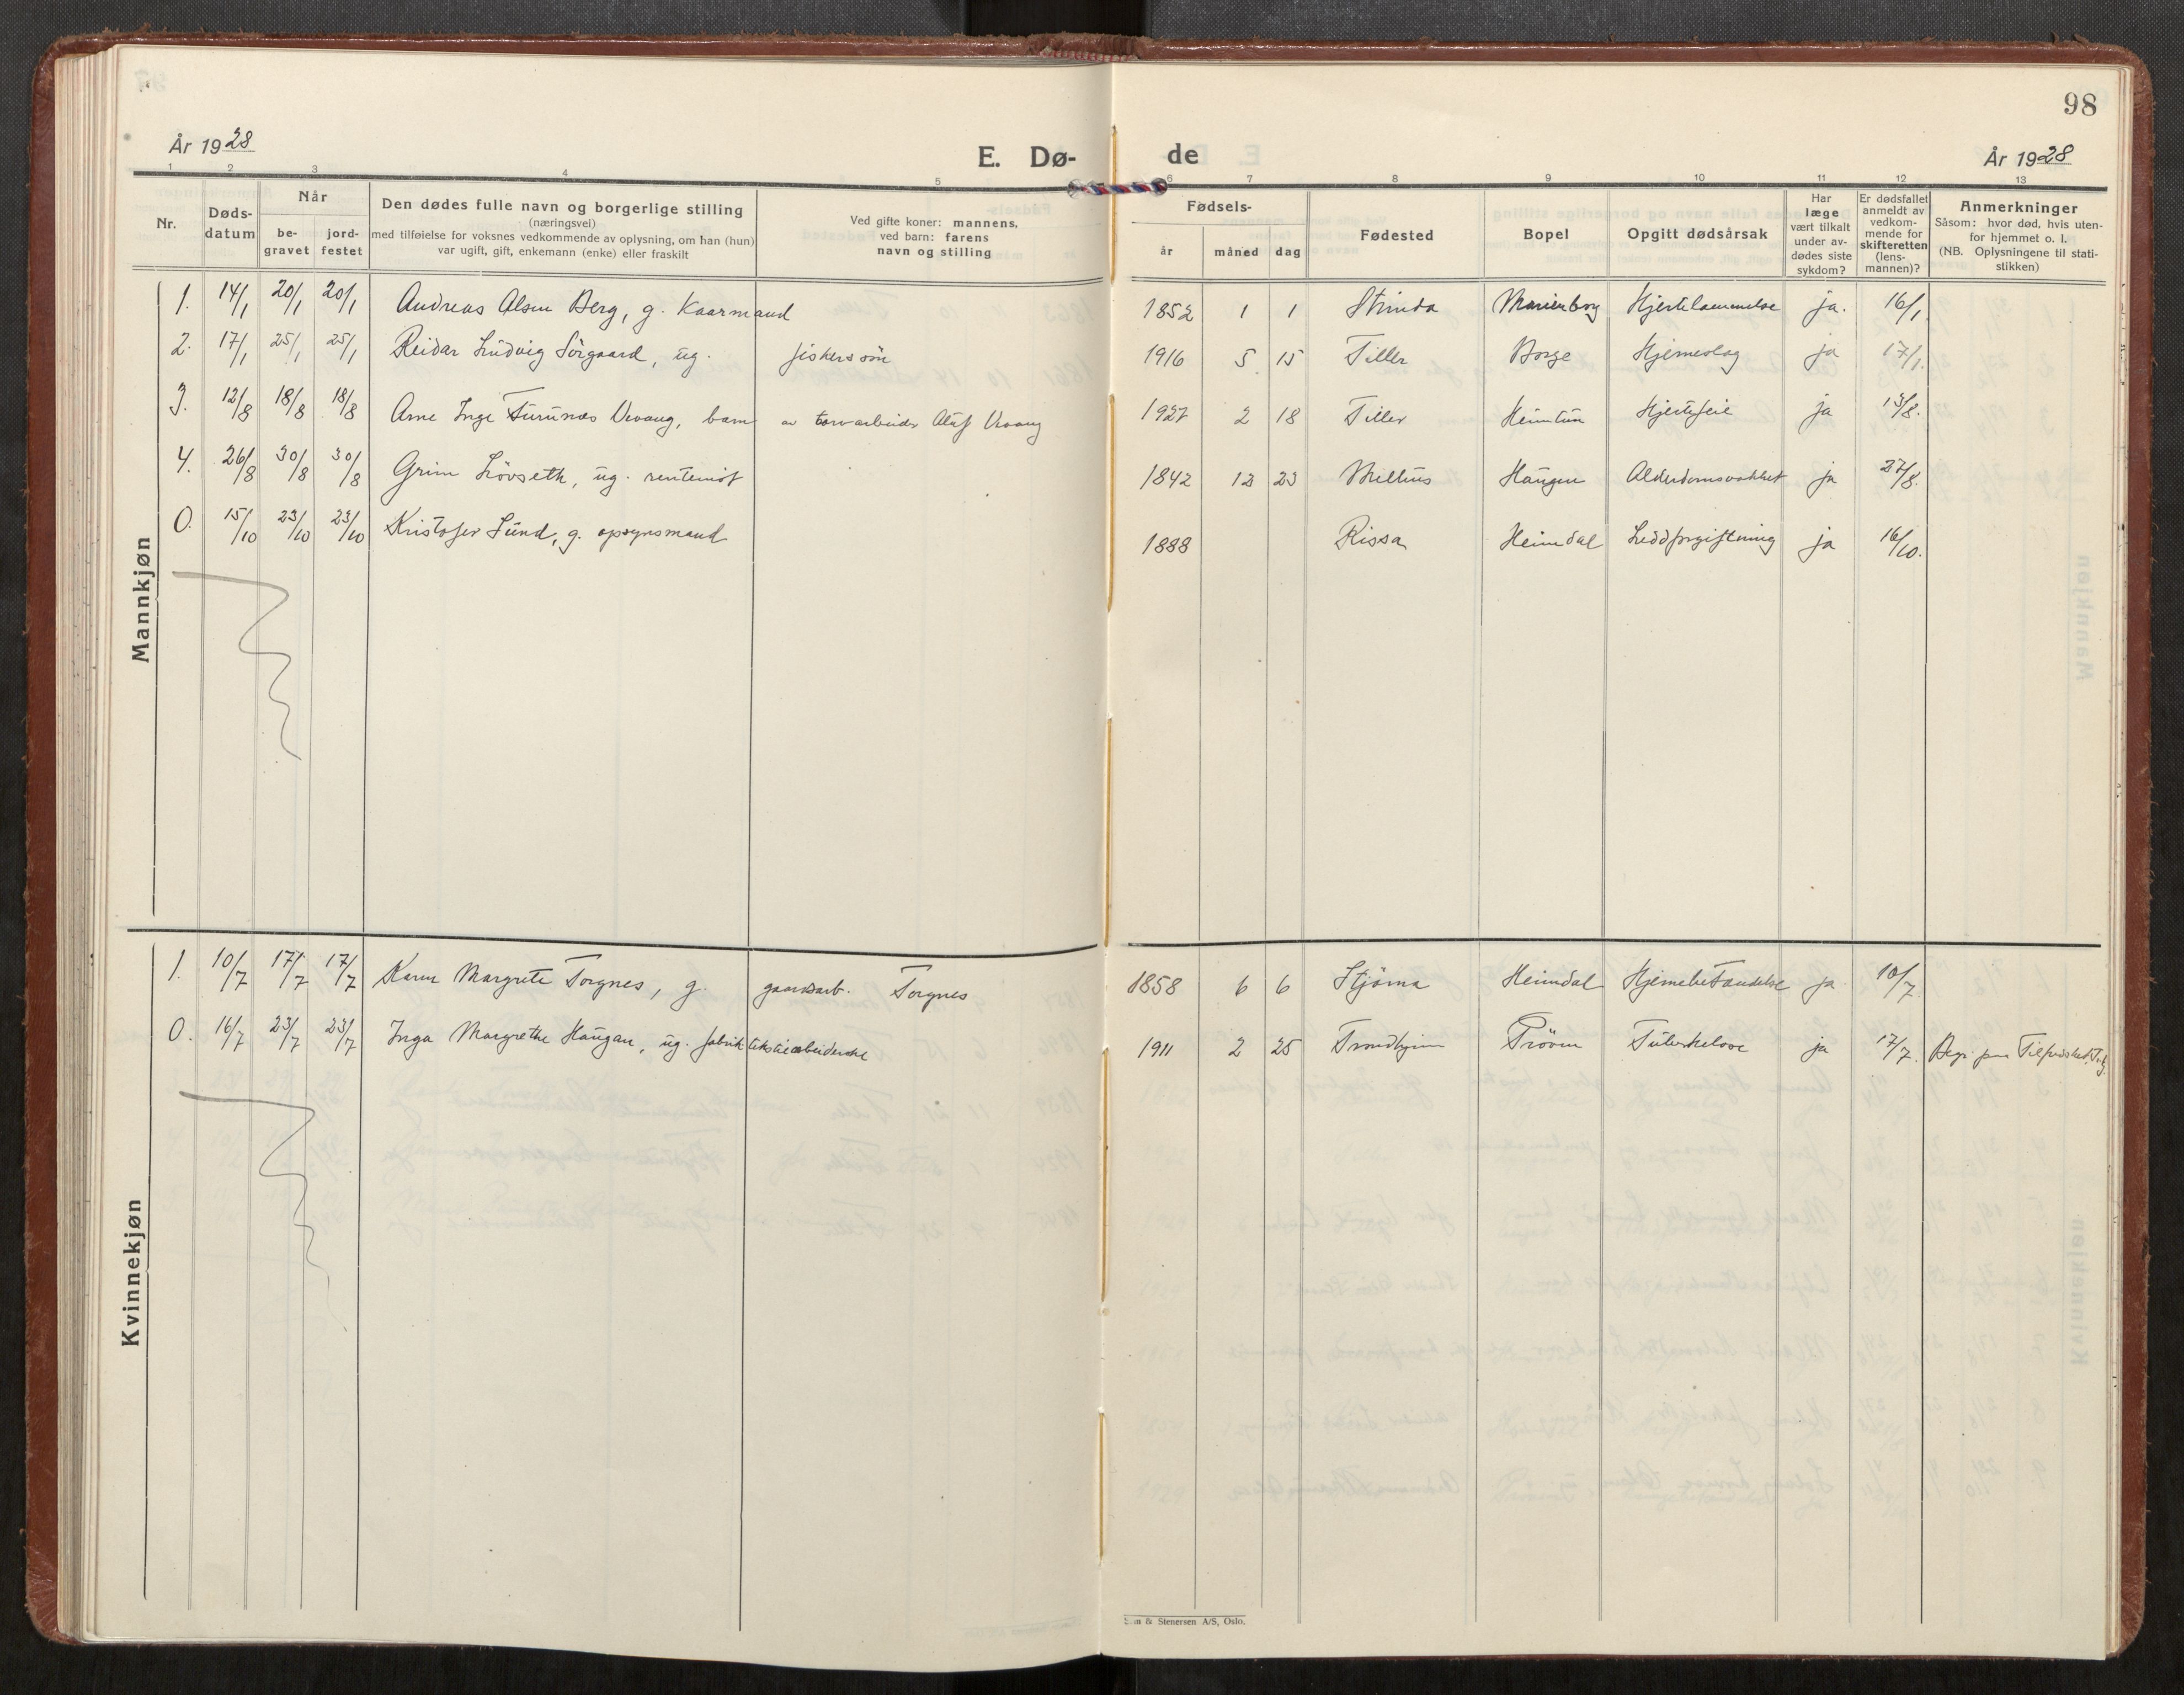 98
År 1928
E. Dø-
de
År 1928
1 2 3 4 5 6 7 8 9 10 11 12 13
Nr.
Døds-
datum
Når
be-
gravet
jord-
festet
Den dødes fulle navn og borgerlige stilling
(næringsvei)
med tilføielse for voksnes vedkommende av oplysning, om han (hun)
var ugift, gift, enkemann (enke) eller fraskilt
Ved gifte koner: mannens,
ved barn: farens
navn og stilling
Fødsels-
år
måned
dag
Fødested
Bopel
Opgitt dødsårsak
Har
læge
vært tilkalt
under av-
dødes siste
sykdom?
Er dødsfallet
anmeldt av
vedkom-
mende for
skifteretten
(lens-
mannen)?
Anmerkninger
Såsom: hvor død, hvis uten-
for hjemmet o. l.
(NB. Oplysningene til stati-
stikken)
Mannkjøn
1. 14/1 20/1 20/1 Andreas Olsen Berg, g. Kaarmand 1852 1 1 Strinda Marienborg Hjertelammelse ja. 16/1
2. 17/1 25/1 25/1 Reidar Ludvig Sörgaard, ug. fiskerssön 1916 5 15 Tiller Borge Hjerneslag ja 17/1.
3. 12/8 18/8 18/8 Arne Inge Furunes Vevang, barn av torvarbeider Olaf Vevang 1927 2 18 Tiller Heimtun Hjertefeil ja 13/8.
4. 26/8 30/8 30/8 Grim Lövseth, ug. rentenist 1842 12 23 Melhus Haugen Alderdomssvakhet ja 27/8.
0. 15/10 23/10 23/10 Kristofer Lund, g. opsynsmand 1888 Rissa Heimdal ja 16/10.
Kvinnekjøn
1. 10/7 17/7 17/7 Karen Margrete Torgnes, g. gaardsarb. Torgnes 1858 6 6 Stjörna Heimdal Hjernebetændelse ja 10/7
0. 16/7 23/7 23/7 Inga Margrethe Haugan, ug. fabrik tekstilarbeiderske 1911 2 25 Trondhjem Tröven Tuberkelose ja 17/7. Begr. paa Tilfredshet,
Sem & Stenersen A/S, Oslo.